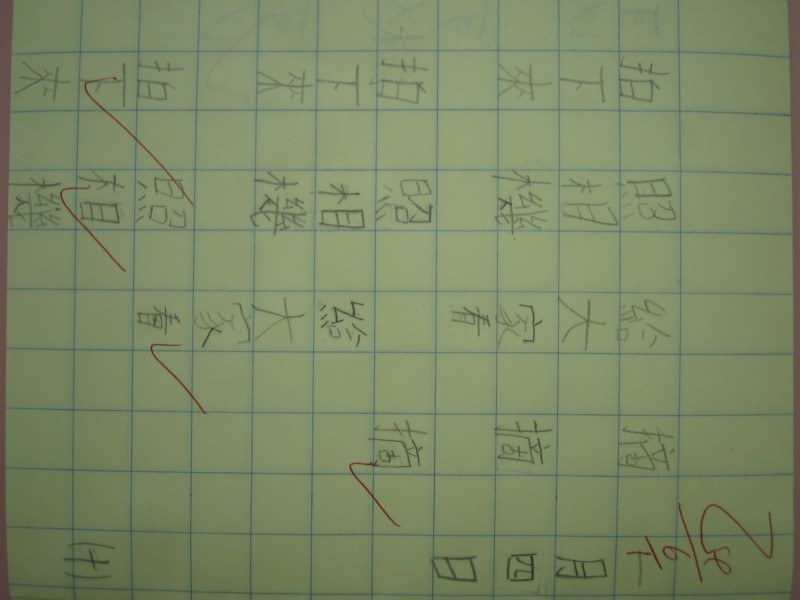 月四日 (十)
摘 摘 摘
給大家看 給大家看
照相機 照相機 照相機
拍下來 拍下來 拍下來